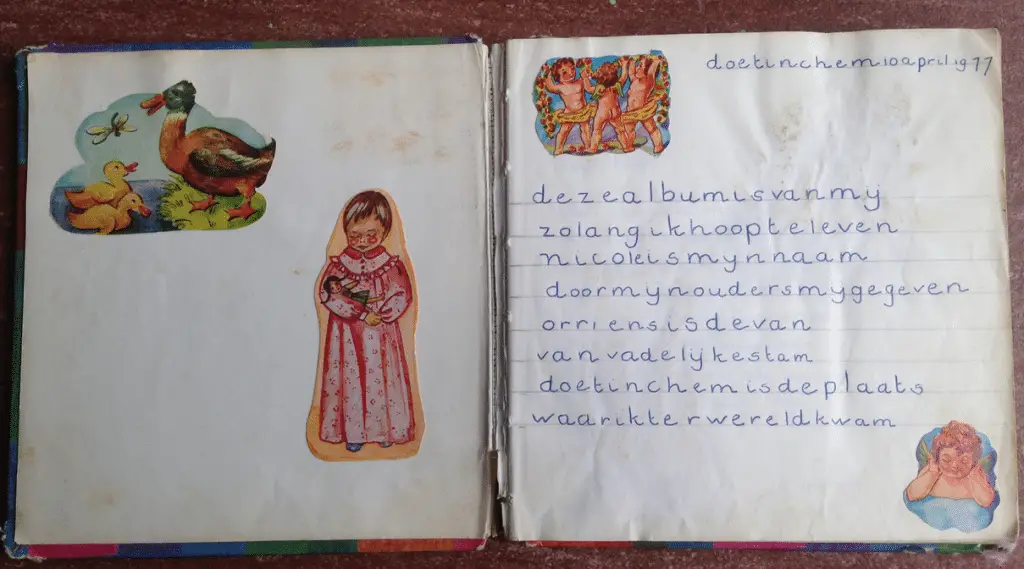 doetinchem 10 april 1977
deze album is van mij
zolang ik hoop te leven
nicole is myn naam
door myn ouders my gegeven
orriens is de van
van vadelyke stam
doetinchem is de plaats
waar ik ter wereld kwam